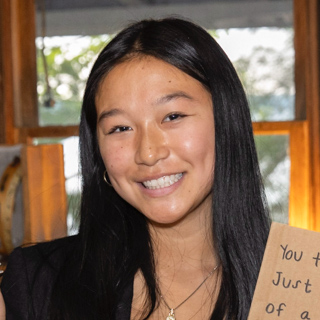 You t
Just
of a